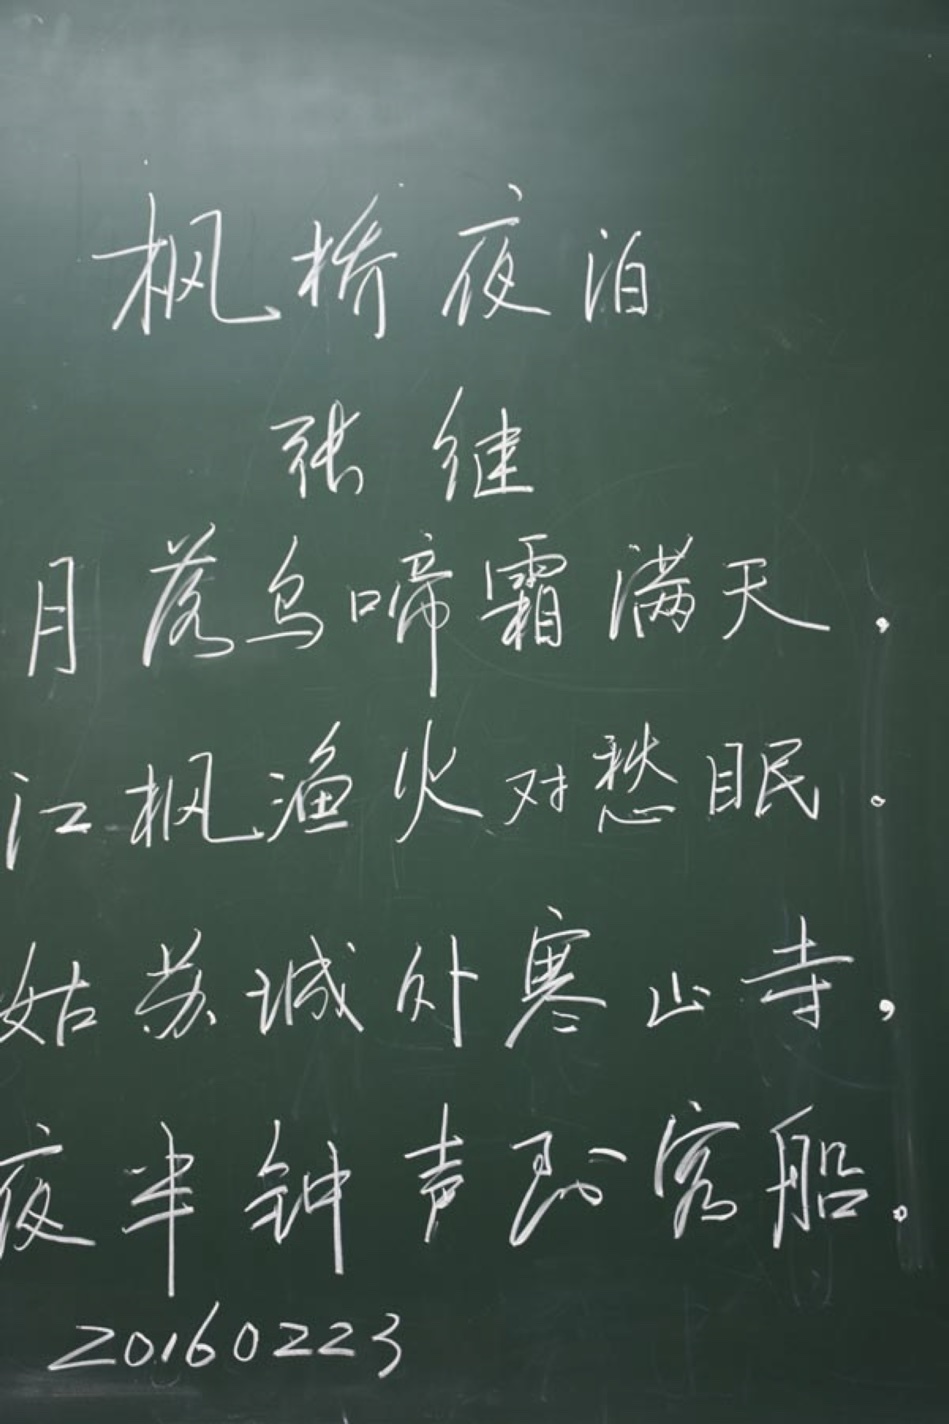 枫桥夜泊
张继
月落乌啼霜满天.
江枫渔火对愁眠.
姑苏城外寒山寺,
夜半钟声到客船。
20160223